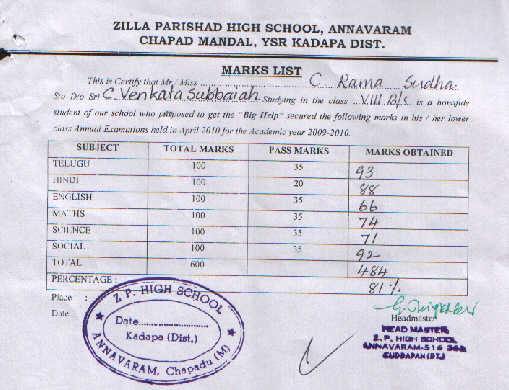 ZILLA PARISHAD HIGH SCHOOL, ANNAVARAM
CHAPAD MANDAL, YSR KADAPA DIST.
MARKS LIST
This is Certify that Mr / Miss C Rama Sudha
S/o D/o Sri C. Venkata Subbaiah Studying in the class VIII B/s is a bonafide
student of our school who proposed to get the "Big Help" secured the following marks in his / her lower
class Annual Examations held in April 2010 for the Academic year 2009-2010.
SUBJECT TOTAL MARKS PASS MARKS MARKS OBTAINED
TELUGU 100 35 93
HINDI 100 20 88
ENGLISH 100 35 66
MATHS 100 35 74
SCIENCE 100 35 71
SOCIAL 100 35 92
TOTAL 600 484
PERCENTAGE : 81%
Place :
Date
Z.P. HIGH SCHOOL
Date
Kadapa (Dist.)
ANNAVARAM, Chapadu (M)
Headmaster
HEAD MASTER
Z. P. HIGH SCHOOL
ANNAVARAM-516
CUDDAPAH (DT.)